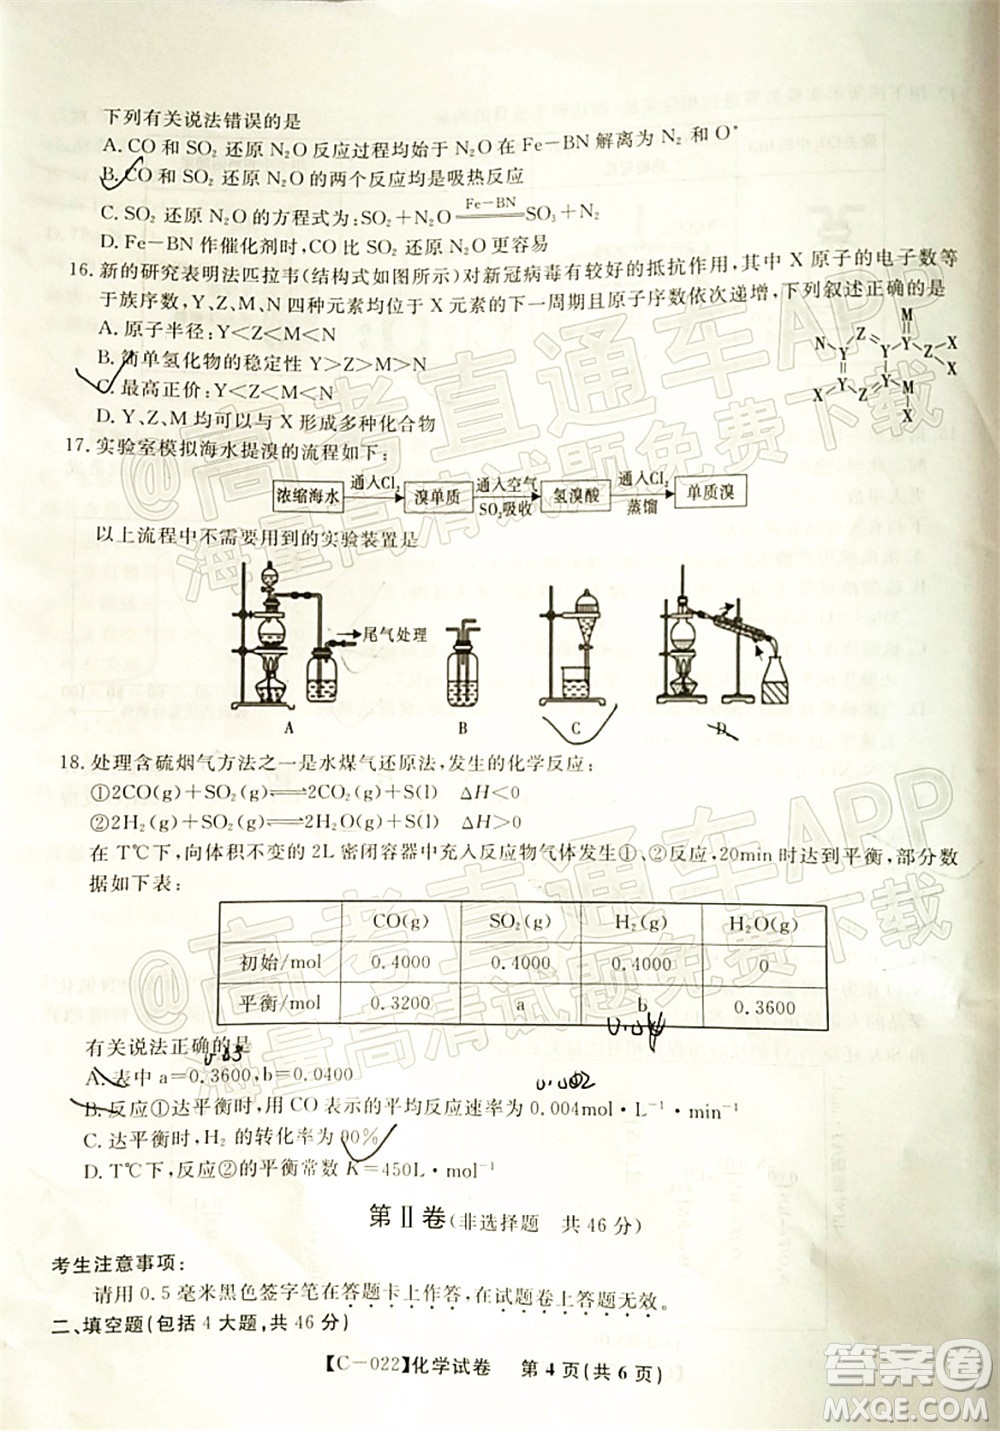 下列有关说法错误的是
A.CO和SO₂还原N₂O反应过程均始于N₂O在Fe-BN解离为N₂和O*
B.CO和SO₂还原N₂O的两个反应均是吸热反应
C.SO₂还原N₂O的方程式为:SO₂+N₂O Fe-BN ══ SO₃+N₂
D.Fe-BN作催化剂时,CO比SO₂还原N₂O更容易
16.新的研究表明法匹拉韦(结构式如图所示)对新冠病毒有较好的抵抗作用,其中X原子的电子数等
于族序数,Y、Z、M、N四种元素均位于X元素的下一周期且原子序数依次递增,下列叙述正确的是
A.原子半径:Y<Z<M<N
B.简单氢化物的稳定性Y>Z>M>N
C.最高正价:Y<Z<M<N
D.Y、Z、M均可以与X形成多种化合物
N Z M
Y Y Y Z X
X
Y Y Y M
X Z
X
17.实验室模拟海水提溴的流程如下:
浓缩海水 通入Cl₂ 溴单质 通入空气 SO₂吸收 氢溴酸 通入Cl₂ 蒸馏 单质溴
以上流程中不需要用到的实验装置是
尾气处理
A B C D
18.处理含硫烟气方法之一是水煤气还原法,发生的化学反应:
①2CO(g)+SO₂(g)⇌2CO₂(g)+S(l) ΔH<0
②2H₂(g)+SO₂(g)⇌2H₂O(g)+S(l) ΔH>0
在T℃下,向体积不变的2L密闭容器中充入反应物气体发生①、②反应,20min时达到平衡,部分数
据如下表:
CO(g) SO₂(g) H₂(g) H₂O(g)
初始/mol 0.4000 0.4000 0.4000 0
平衡/mol 0.3200 a b 0.3600
0.04
有关说法正确的是
A.表中a=0.3600,b=0.0400
0.002
B.反应①达平衡时,用CO表示的平均反应速率为0.004mol·L⁻¹·min⁻¹
C.达平衡时,H₂的转化率为90%
D.T℃下,反应②的平衡常数K=450L·mol⁻¹
第Ⅱ卷(非选择题 共46分)
考生注意事项:
请用0.5毫米黑色签字笔在答题卡上作答,在试题卷上答题无效。
二、填空题(包括4大题,共46分)
【C-022】化学试卷 第4页(共6页)
@高考直通车APP
海量高清试题免费下载
@高考直通车APP
海量高清试题免费下载
答案圈
MXQE.COM